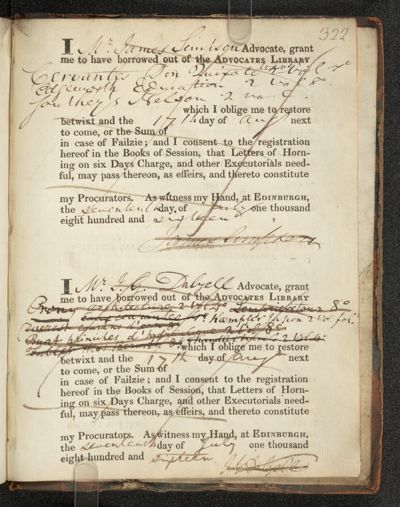 322
I Mr. James Simpson Advocate, grant
me to have borrowed out of the ADVOCATES LIBRARY
Cervantes Don Quixote 4to
Edgeworth Education 2 vol 8o
Southey's Nelson 2 vo
which I oblige me to restore
betwixt and the 17th day of Aug next
to come, or the Sum of
in case of Failzie; and I consent to the registration
hereof in the Books of Session, that Letters of Horn-
ing on six Days Charge, and other Executorials need-
ful, may pass thereon, as effeirs, and thereto constitute
my Procurators. As witness my Hand, at EDINBURGH,
the seventeenth day of July one thousand
eight hundred and sixteen
James Simpson
I Mr. J. G. Dalyell Advocate, grant
me to have borrowed out of the ADVOCATES LIBRARY
Architecture 2 vol 4o 8o
2 vo
8o
which I oblige me to restore
betwixt and the 17th day of Augt next
to come, or the Sum of
in case of Failzie; and I consent to the registration
hereof in the Books of Session, that Letters of Horn-
ing on six Days Charge, and other Executorials need-
ful, may pass thereon, as effeirs, and thereto constitute
my Procurators. As witness my Hand, at EDINBURGH,
the seventeenth day of July one thousand
eight hundred and sixteen